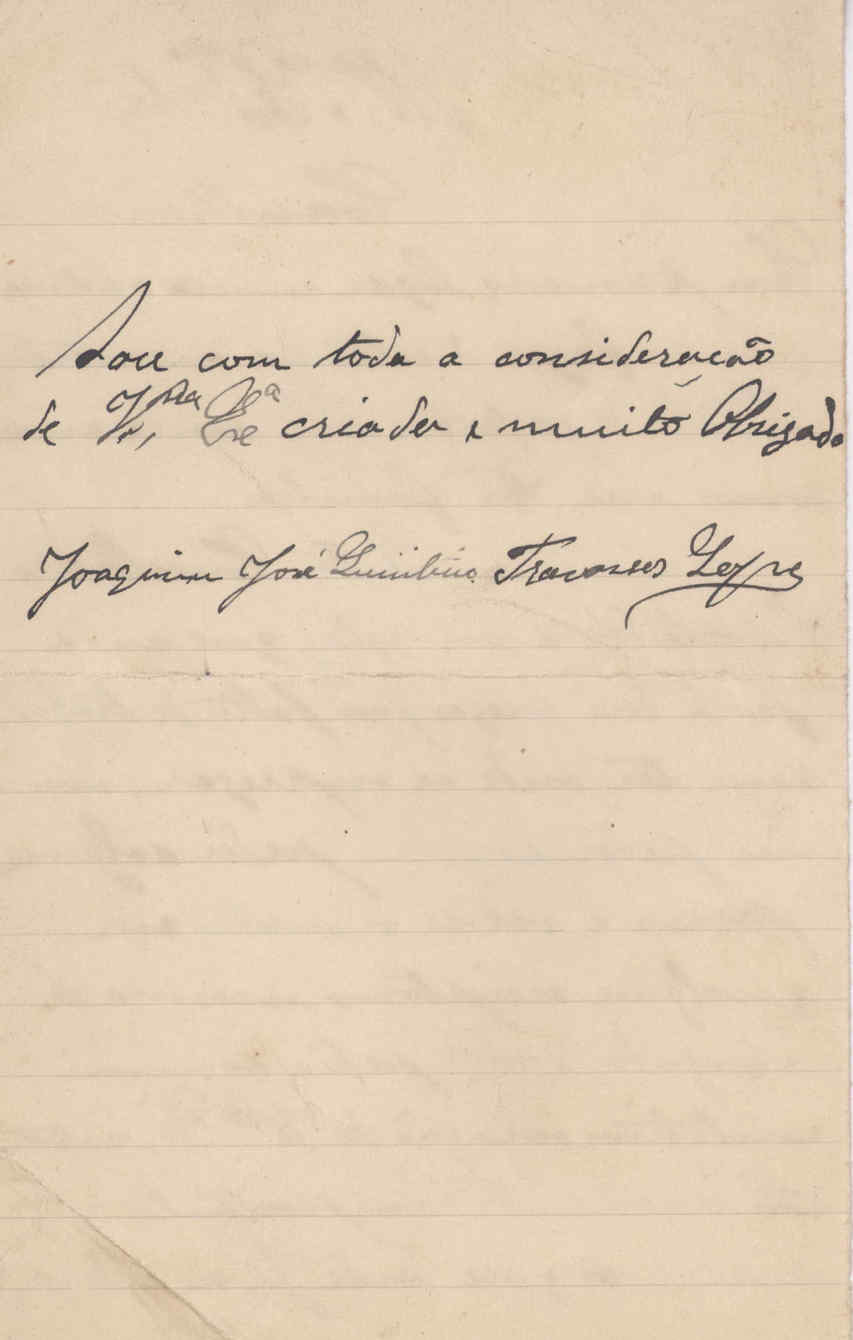 Sou com toda a consideração
de V.ª Ex.ª criado e muito Obrigado
Joaquim José Travassos Lopes